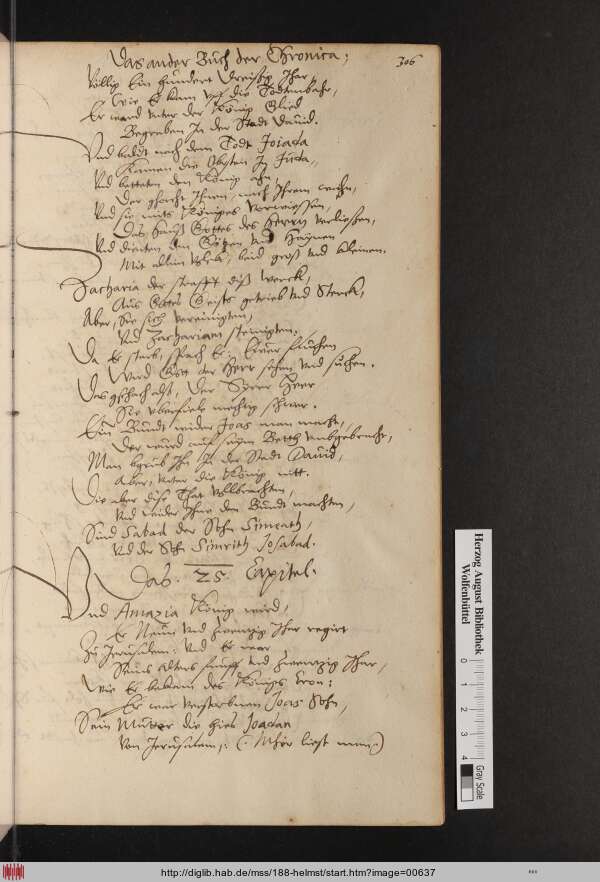 Das ander Buch der Chronica;
306
Völlig Ein hundert Dreissig Jhar,
Wie Er kam uff die Todtenbahr,
Er ward unter der König Glied
Begraben In der Stadt David.
Und baldt nach dem Todt Joiada
Kamen die Obersten In Juda,
Und betteten den König ahn,
Der gehorcht Ihnen, nach Ihrem wahn,
Und sie mits Königes Vorwissen,
Das Hauß Gottes des Herrn verliessen,
Und dienten den Götzen und Haynen
Mit allem Volck, baid groß und kleinen.
Zacharia der strafft diß werck,
Aus Gottes Geists getrieb und Sterck,
Aber, Sie sich vereinigten,
Und Zachariam steinigten;
Da Er starb, sprach Er: Euer fluchen
Wird Gott der Herr sehen und suchen.
Das geschach alß, Der Syrer Heer
Sie uberfiele mechtig schwer.
Ein Bundt wider Joas man macht,
Der ward auf seym Betth umbgebracht,
Man begrub Ihn In der Stadt David,
Aber, unter die König nitt.
Die aber dise That vollbrachten,
Und wider Ihn den Bundt machten,
Sind Sabad der Sohn Simeath,
Und der Sohn Simrith Josabad.
Das. 25. Capitel.
Und Amazia König ward,
Er Neun und zwentzig Jhar regirt
Zu Jerusalem: Und Er war
Seines Alters fünff und zwentzig Jhar,
Wie Er bekam des Königs Cron:
Er war verstorbenen Joas Sohn,
Sein Mutter die hies Joadan
Von Jerusalem,: (Mehr liest man.)
Herzog August Bibliothek
Wolfenbüttel
0 1 2 3 4
Gray Scale
http://diglib.hab.de/mss/188-helmst/start.htm?image=00637